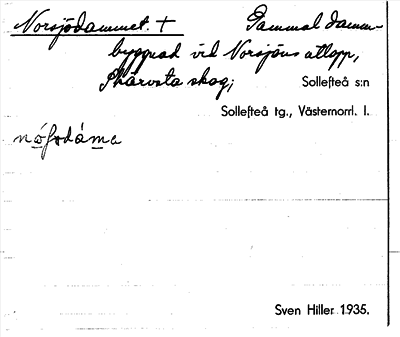 Norsjödammet. † Gammal damm-
byggnad vid Norsjöns utlopp,
Skärvsta skog; Sollefteå s:n
Sollefteå tg., Västernorrl. l.
Sven Hiller 1935.